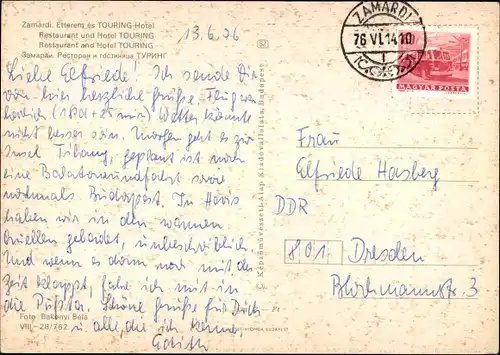 Zamárdi. Étterem és TOURING-Hotel
Restaurant und Hotel TOURING
Restaurant and Hotel TOURING
Замарди. Ресторан и гостиница ТУРИНГ
13.6.76
ZAMÁRDI
76 VI.14 10
MAGYAR POSTA
Liebe Elfriede! Ich sende Dir
von hier herzliche Grüße. Flug war
herrlich (1 Std + 25 min) Wetter könnte
nicht besser sein. Morgen geht es zur
Insel Tihany, geplant ist noch
eine Balatonrundfahrt sowie
nochmals Budapest. In Hévis
haben wir in den warmen
Quellen gebadet, unbeschreiblich
Und wenn es dann noch mit der
Zeit klappt, fahre ich mit in
die Pußta. Schöne Grüße für Dich
u. alle, die ich kenne,
Frau
Elfriede Hasberg
DDR
801 Dresden
Blochmannstr. 3
© Képzőművészeti Alap Kiadóvállalata, Budapest
Foto: Bakonyi Béla
VIII-28/762